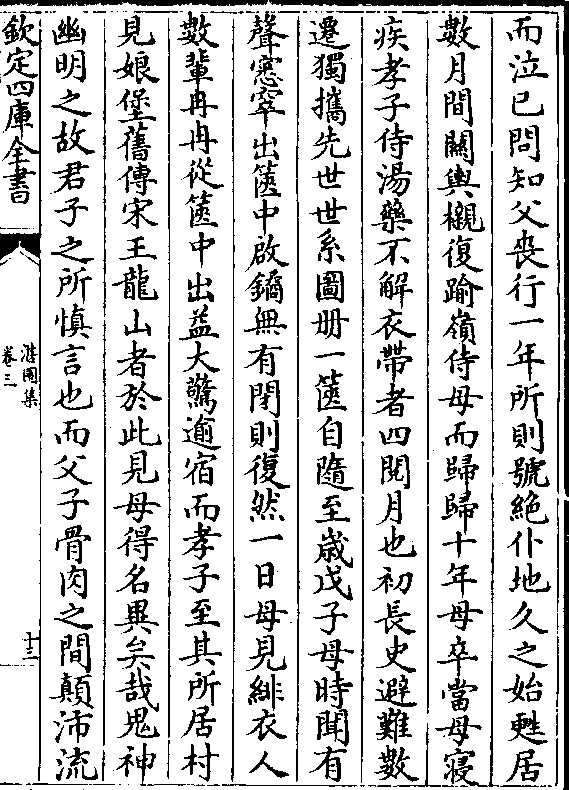 而泣已問知父喪行一年所則號絶仆地久之始甦居
數月間關輿櫬復踰嶺侍母而歸歸十年母卒當母寢
疾孝子侍湯藥不解衣帶者四閱月也初長史避難數
遷獨攜先世世系圖册一篋自隨至歳戊子母時聞有
聲窸窣出篋中啟鐍無有閉則復然一日母見緋衣人
數輩冉冉從篋中出益大驚逾宿而孝子至其所居村
見娘堡舊傳宋王龍山者於此見母得名異矣哉鬼神
幽明之故君子之所慎言也而父子骨肉之間顛沛流
欽定四庫全書
卷三
十三